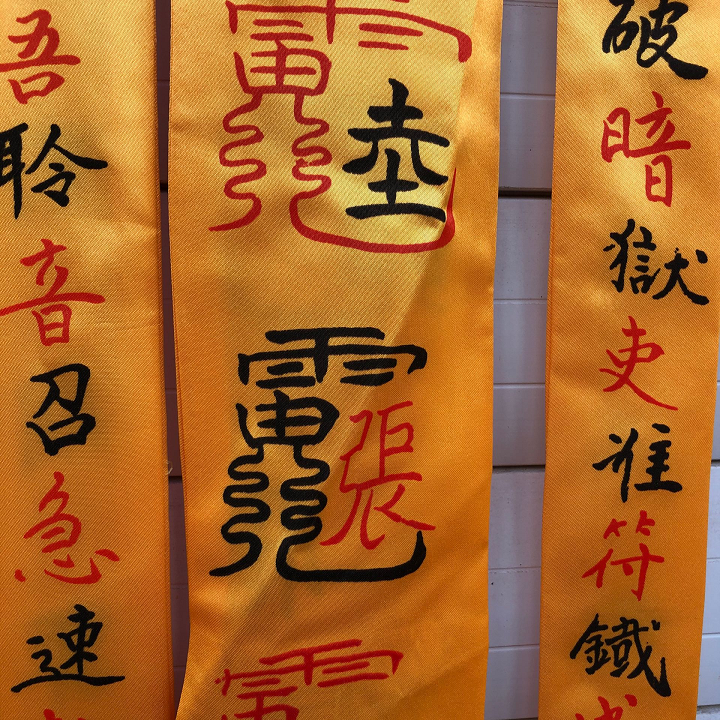 破暗獄吏准符鐵
坴張
吾聆音召急速